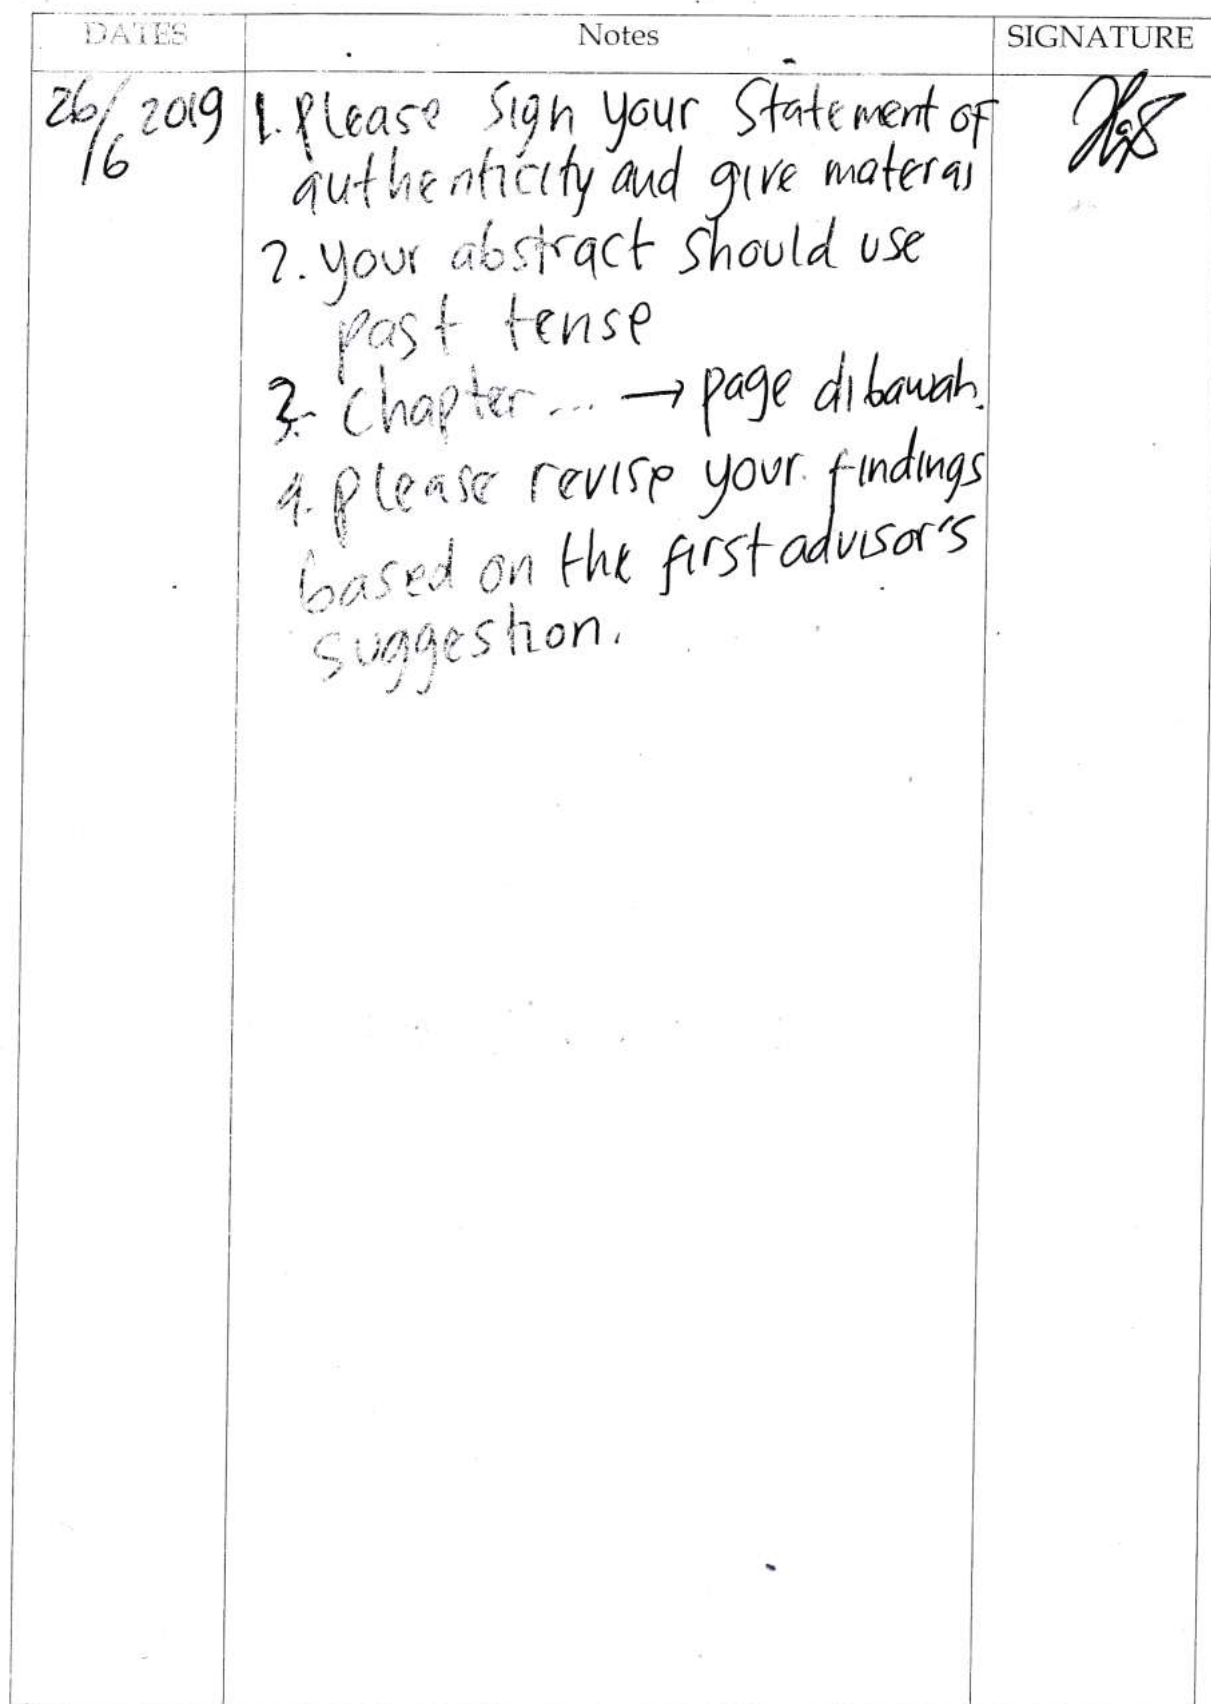 DATES Notes SIGNATURE
26/6 2019 1. Please sign your Statement of
authenticity and give materai
2. your abstract should use
past tense
3. Chapter... → page dibawah.
4. please revise your findings
based on the first advisor's
suggestion.